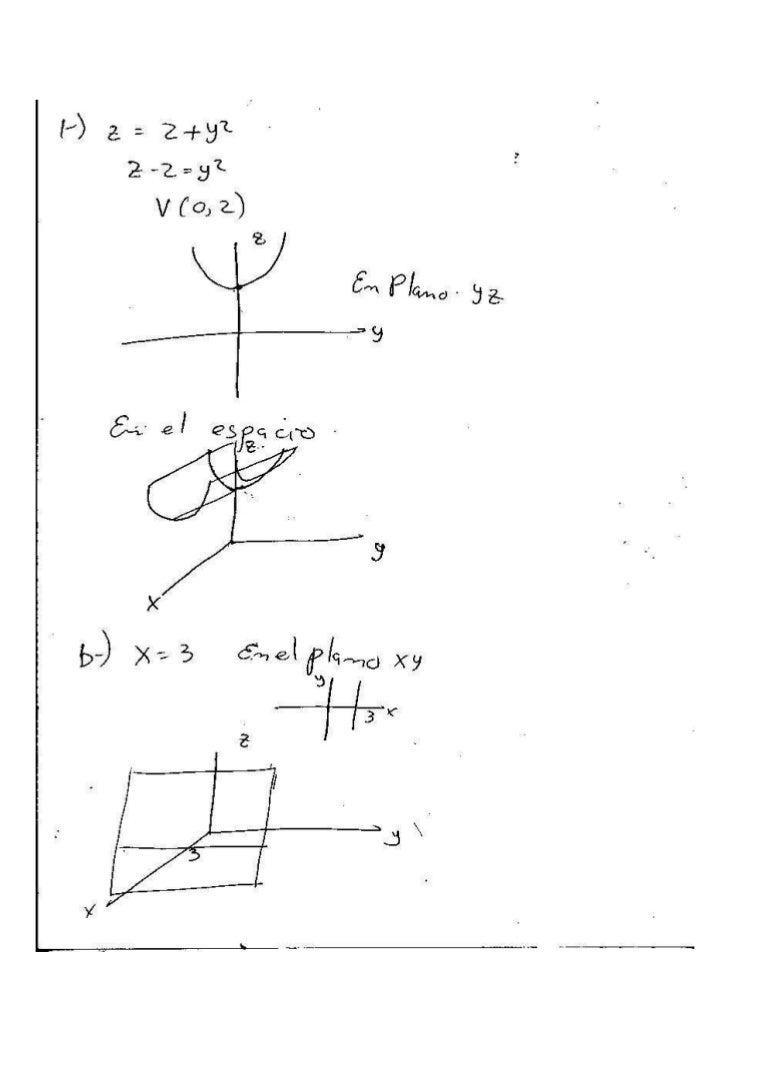 1-) z = 2+y²
z-2=y²
V(0,2)
z
En Plano. yz
y
En el espacio
z
y
x
b-) x=3 En el plano xy
y
3 x
z
y
3
x